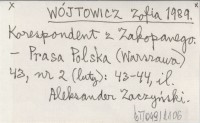 x x
WÓJTOWICZ Zofia 1989.
Korespondent z Zakopanego.
- Prasa Polska (Warszawa)
43, nr 2 (luty): 43-44, il.
Aleksander Zaczyński.